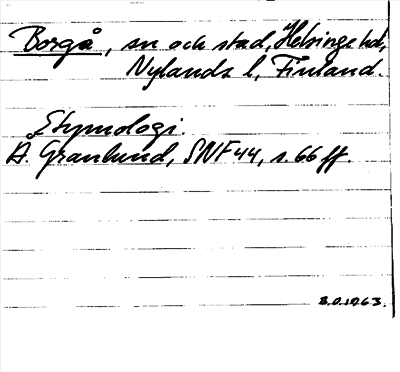 Borgå, sn och stad, Helsinge hd,
Nylands l, Finland.
Etymologi.
Å. Granlund, SNF 44, s. 66 ff.
B.O.1963.